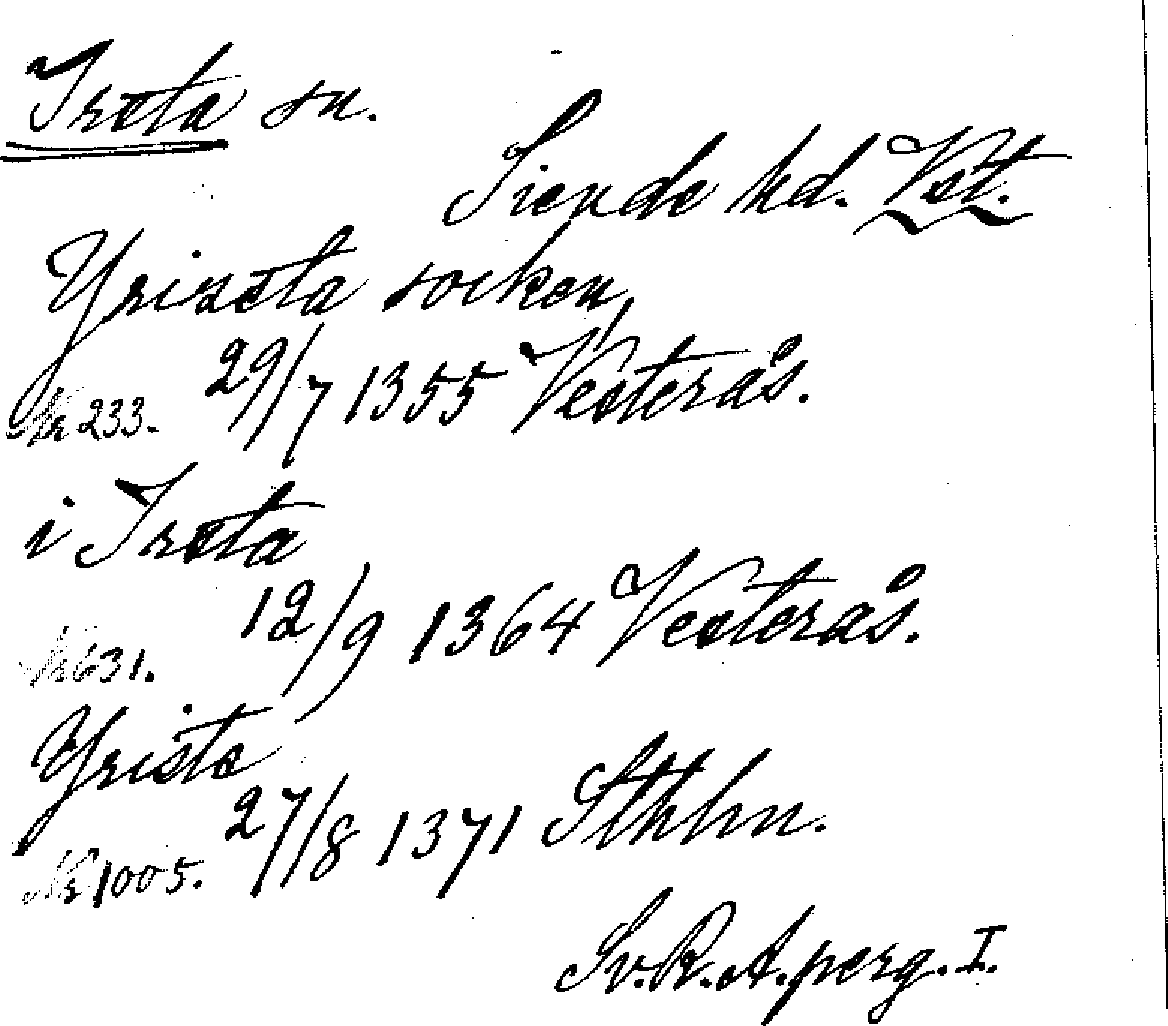 Irsta sn.
Siende hd. Vst.
Yrizsta socken,
Nr 233. 29/7 1355 Vesterås.
i Irsta
Nr 631. 12/9 1364 Vesterås.
Yrista
Nr 1005. 27/8 1371 Sthlm.
Sv. R. A. perg. I.